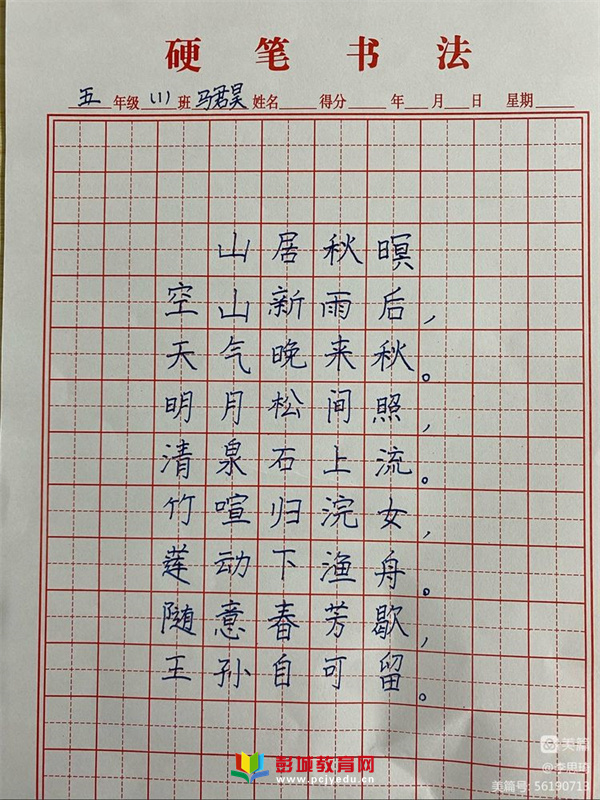 硬笔书法
五年级(1)班马君昊姓名 得分 年 月 日 星期
山居秋暝
空山新雨后,
天气晚来秋。
明月松间照,
清泉石上流。
竹喧归浣女,
莲动下渔舟。
随意春芳歇,
王孙自可留。
彭城教育网
www.pcjyedu.cn
美篇
@李思琦
美篇号: 56190713